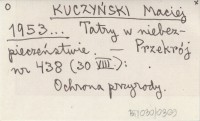 KUCZYŃSKI Maciej
1953... Tatry w niebez-
pieczeństwie. — Przekrój
nr 438 (30 VIII.):
Ochrona przyrody.